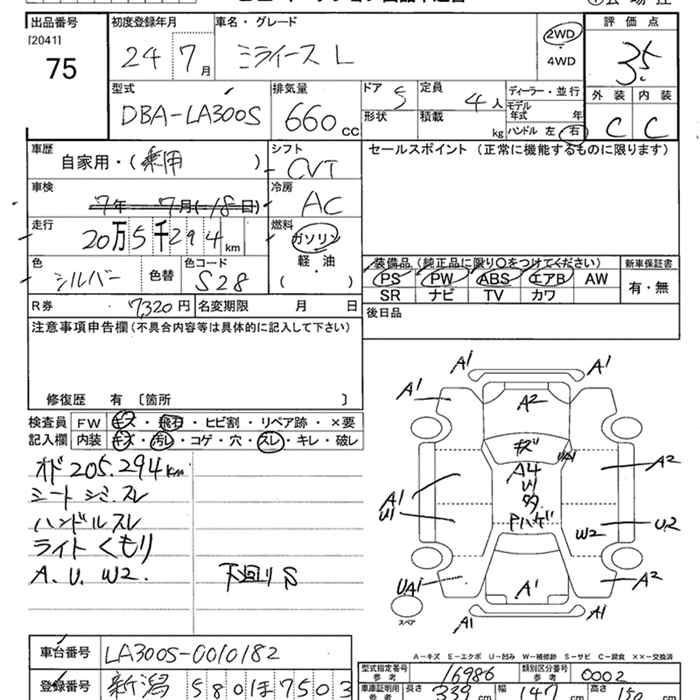 出品番号 初度登録年月 車名・グレード 評価点
[2041] 24 7月 ミライース L 2WD 3.5
75 4WD
型式 排気量 ドア 5 定員 4人 ディーラー・並行 外装 内装
DBA-LA300S 660cc 形状 積載 kg モデル年式 年 C C
ハンドル 左 右
車歴 シフト セールスポイント (正常に機能するものに限ります)
自家用・(乗用) CVT
車検 冷房
7年 7月(-18日) AC
走行 燃料
20万5千294km ガソリン
軽・油
色 色替 色コード 装備品 (純正品に限り○をつけてください) 新車保証書
シルバー S28 ( ) PS PW ABS エアB AW 有・無
SR ナビ TV カワ
R券 7,320円 名変期限 月 日 後日品
注意事項申告欄 (不具合内容等は具体的に記入して下さい)
修復歴 有 〔箇所 〕
検査員 FW キズ・飛石・ヒビ割・リペア跡・×要
記入欄 内装 キズ・汚レ・コゲ・穴・スレ・キレ・破レ
オド205.294km
シート シミ.スレ
ハンドルスレ
ライトくもり
A.U.W2. 下回りS
A1 A1
A1 A2 A1
キズ UA1
A4 A2
A1 U1
U1 U2
Pハゲ W2
UA1 A1 A2
スペア A1 A1
A-キズ E-エクボ U-凹み W-補修跡 S-サビ C-腐食 ××-交換済
車台番号 LA300S-0010182
型式指定番号 参考 16986 類別区分番号 参考 0002
登録番号 新潟 580 ほ 7503
車庫証明用 長さ 339cm 幅 147cm 高さ 150cm